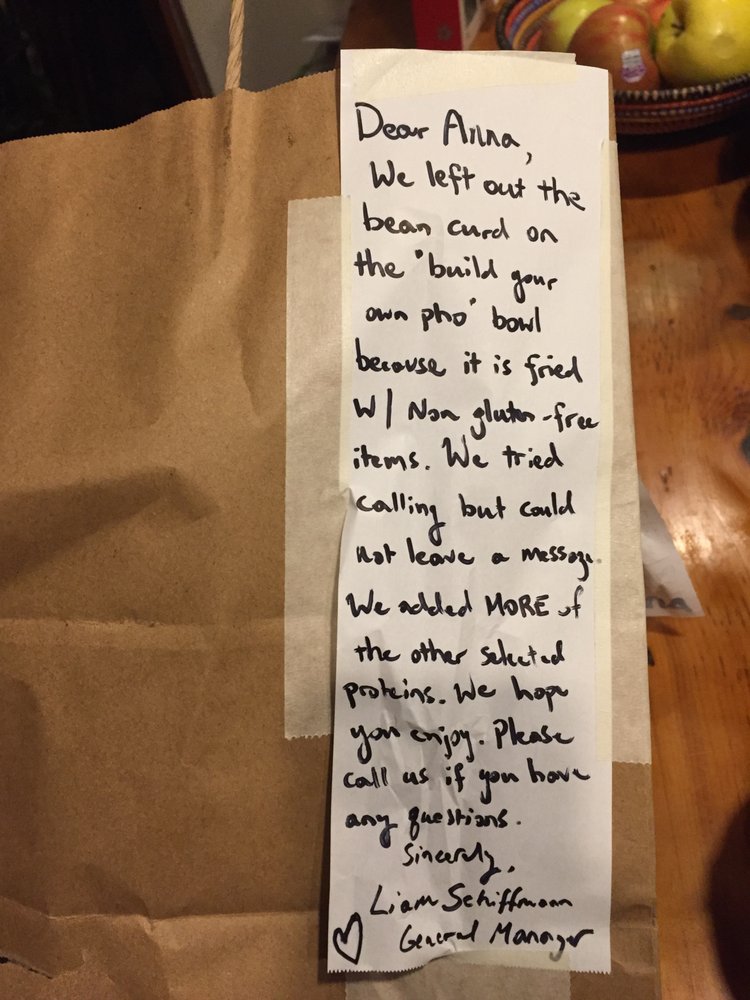 Dear Anna,
We left out the
bean curd on
the "build your
own pho" bowl
because it is fried
w/ Non gluten-free
items. We tried
calling but could
not leave a message.
We added MORE of
the other selected
proteins. We hope
you enjoy. Please
call us if you have
any questions.
Sincerely,
Liam Schiffmann
General Manager